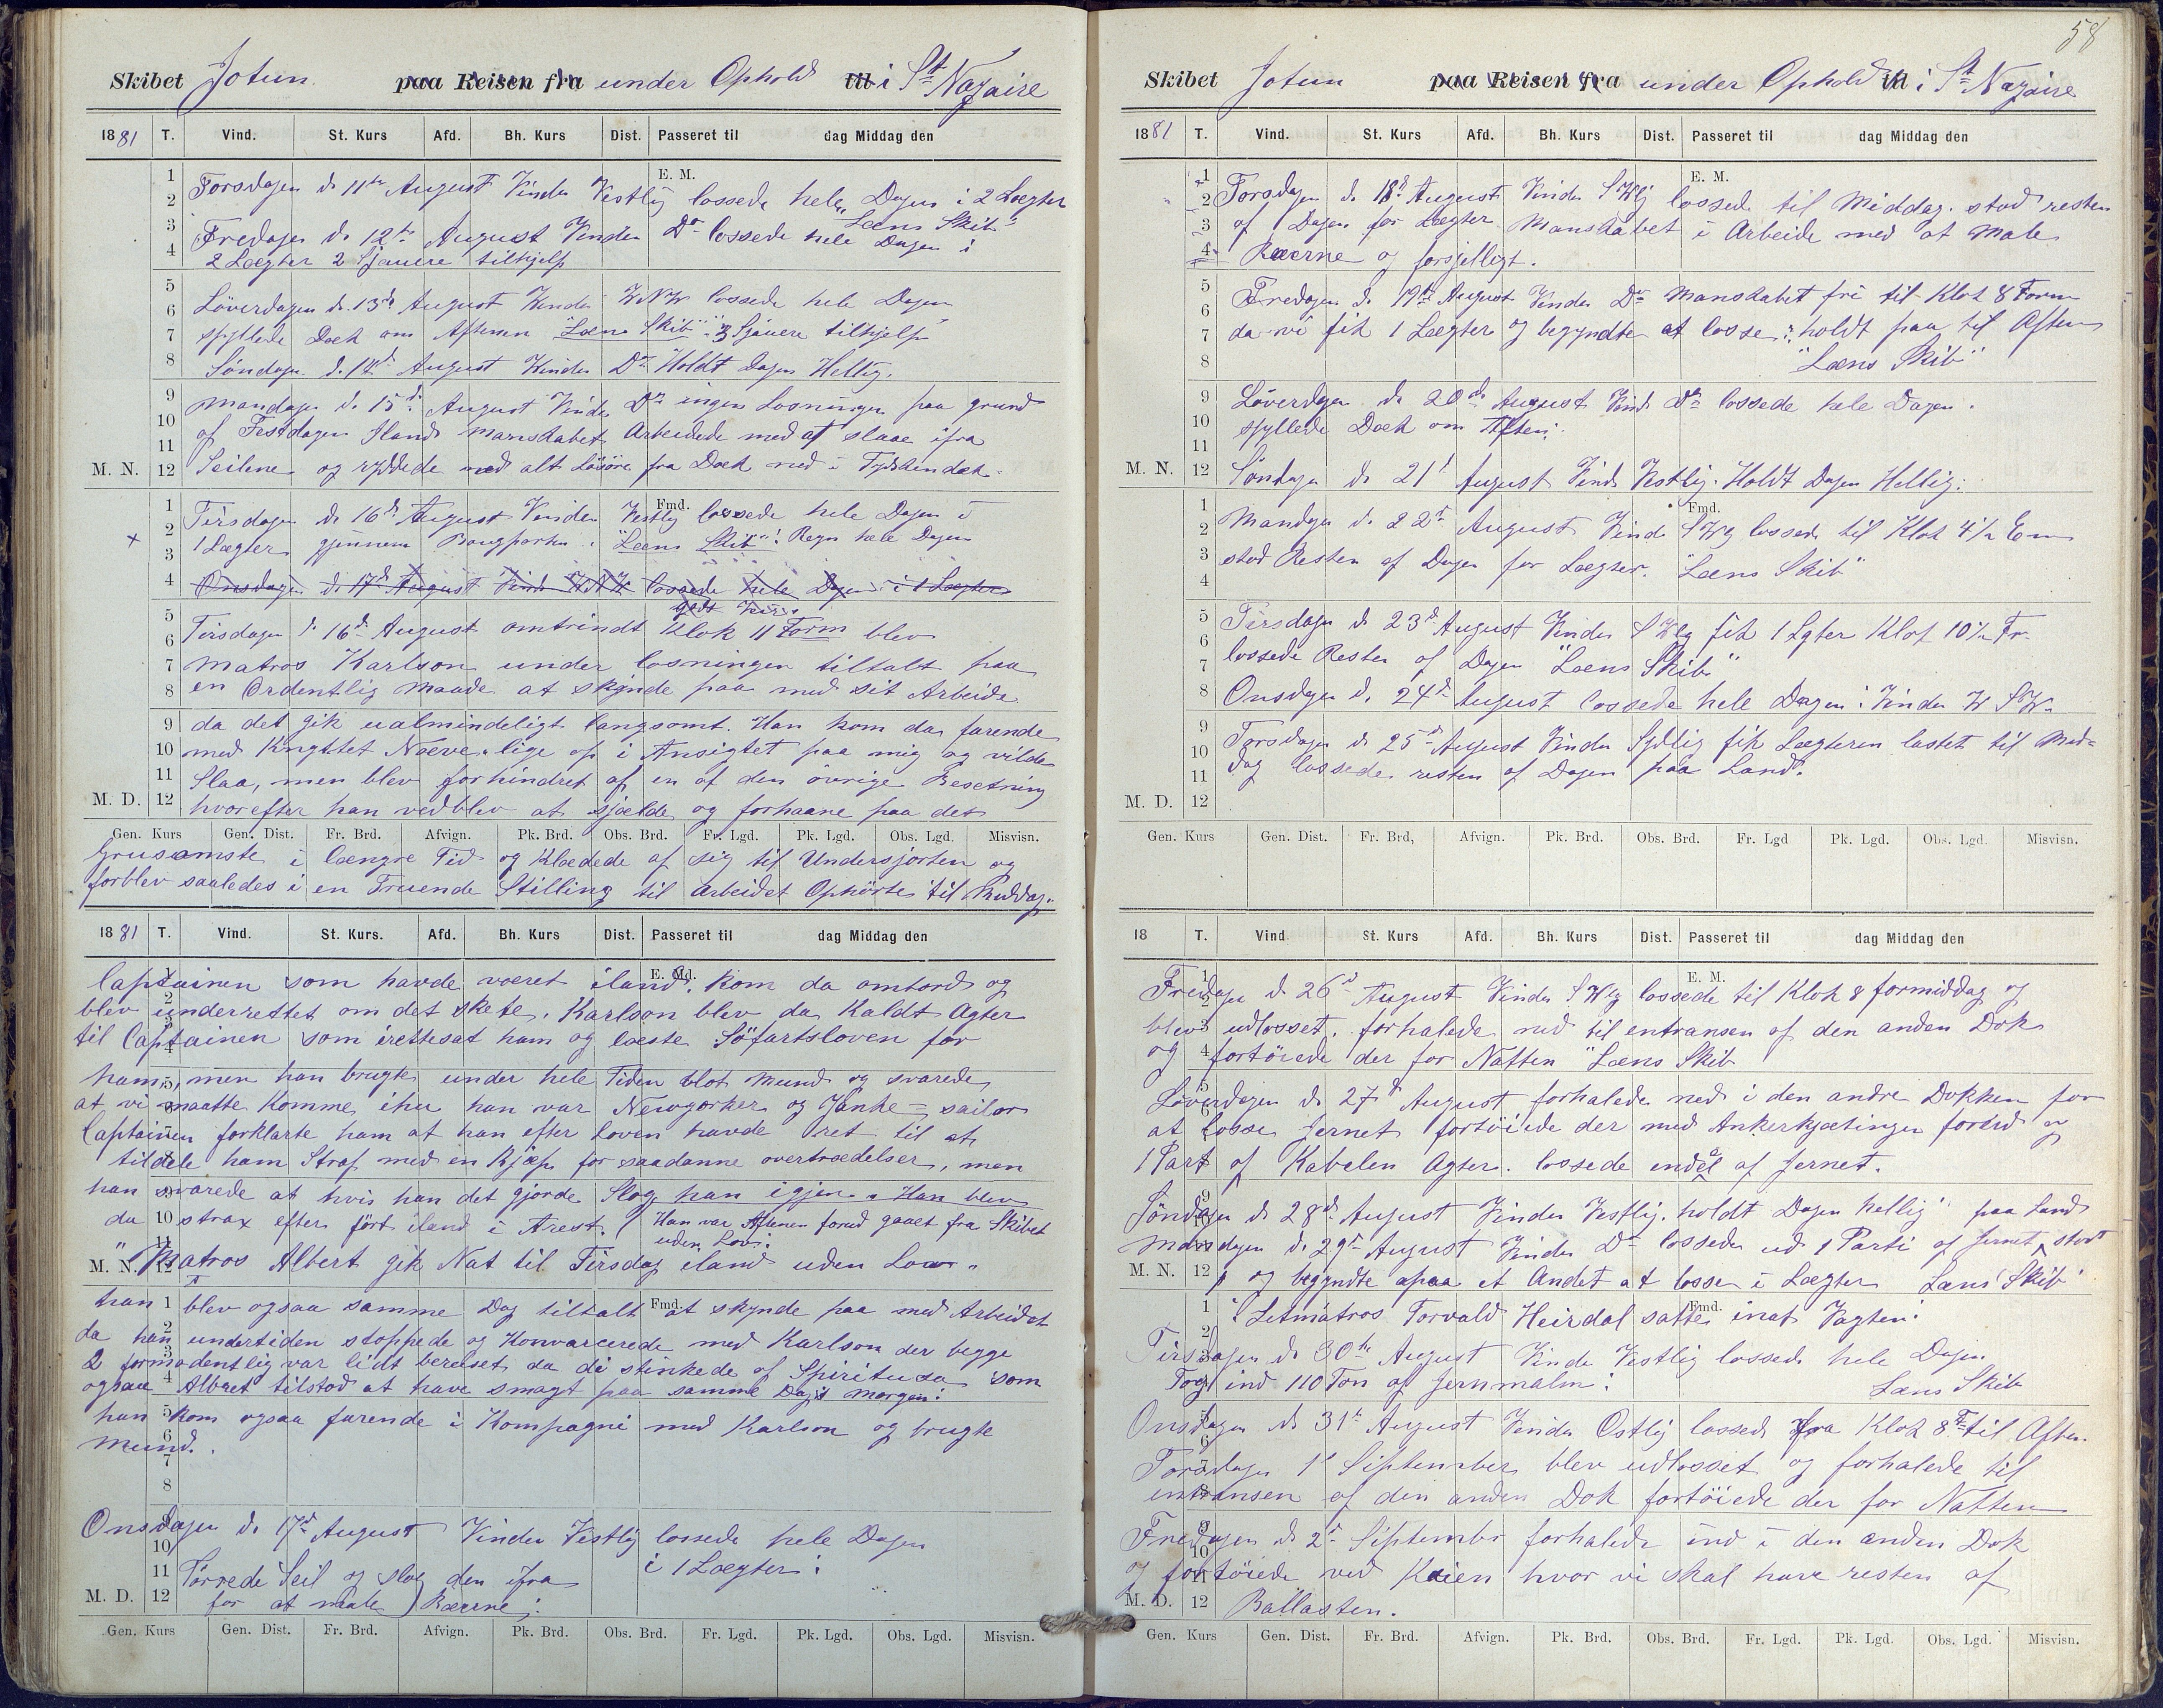 Skibet Jotun paa Reisen fra under Ophold til i St Nazaire
1881 T. Vind. St. Kurs Afd. Bh. Kurs Dist. Passeret til dag Middag den
E. M.
Torsdagen d. 11te August Vinden Vestlig lossede hele Dagen i 2 Lægter
"Læns Skib"
Fredagen d. 12te August Vinden Do lossede hele Dagen i
2 Lægter 2 Sjauere tilhjelp
Löverdagen d. 13de August Vinden WNW lossede hele Dagen
spyllede Dæk om Aftenen "Læns Skib" 3 Sjauere tilhjelp
Söndagen d. 14d August Vinden Do Holdt Dagen Hellig.
Mandagen d. 15d August Vinden Do ingen Losningen paa grund
af Festdagen Iland Manskabet Arbeidede med at slaae ifra
M. N. Seilene og ryddede med alt Lösöre fra Dæk ned i Tydskendæk
Fmd.
Tirsdagen d. 16d August Vinden Vestlig lossede hele Dagen i
1 Lægter gjennem Bougporten. "Læns Skib" Regn hele Dagen
Onsdagen d. 17d August Vind WNW lossede hele Dagen i 1 Lægter
godt Veir.
Tirsdagen d. 16d August omtrindt Klok 11 Form blev
Matros Karlson under losningen tiltalt paa
en Ordentlig Maade at skynde paa med sit Arbeide
da det gik ualmindeligt langsomt. Han kom da farende
med Knyttet Næve lige op i Ansigtet paa mig og vilde
Slaa, men blev forhindret af en af den övrige Besetning
M. D. hvorefter han vedblev at sjælde og forhaane paa det
Gen. Kurs Gen. Dist. Fr. Brd. Afvign. Pk. Brd. Obs. Brd. Fr. Lgd. Pk. Lgd. Obs. Lgd. Misvisn.
Grusomste i længre Tid og Klædede af sig til Undersjorten og
forblev saaledes i en Truende Stilling til Arbeidet Ophörte til Middag.
1881 T. Vind. St. Kurs. Afd. Bh. Kurs Dist. Passeret til dag Middag den
E. Md.
Captainen som havde været iland, kom da ombord og
blev underrettet om det skete. Karlson blev da Kaldt Agter
til Captainen som irettesat ham og læste Söfartsloven for
ham, men han brugte under hele Tiden blot Mund og svarede
at vi maatte Komme ihu han var Newyorker og Yanke-sailor
Captainen forklarte ham at han efter Loven havde ret til at
tildele ham Straf med en Kjæp for saadanne overtrædelser, men
han svarede at hvis han det gjorde Slog han igjen. Han blev
da strax efter fört iland i Arest. (Han var Aftenen forud gaaet fra Skibet
uden Lov.
M. N. Matros Albert gik Nat til Tirsdag iland uden Lov.
Fmd.
han blev ogsaa samme Dag tiltalt at skynde paa med Arbeidet
da han undertiden stoppede og Konvarcerede med Karlson der begge
2 formodentlig var lidt beruset da de stinkede af Spiritusa som
ogsaa Albret tilstod at have smagt paa samme Dags Morgen:
han kom ogsaa farende i Kompagni med Karlson og brugte
Mund.
Onsdagen d. 17d August Vinden Vestlig lossede hele Dagen
i 1 Lægter:
Törrede Seil og slog den ifra
M. D. for at male Rærne:
Gen. Kurs Gen. Dist. Fr. Brd. Afvign. Pk. Brd. Obs. Brd. Fr. Lgd. Pk. Lgd. Obs. Lgd. Misvisn.
58
Skibet Jotun paa Reisen fra under Ophold til i St Nazaire
1881 T. Vind. St. Kurs Afd. Bh. Kurs Dist. Passeret til dag Middag den
E. M.
Torsdagen d. 18d August Vinden SWlig lossede til Middag. stod resten
af Dagen for Lægter Manskabet i Arbeide med at Male
Ræerne og forsjelligt.
Fredagen d. 19d August Vinden Do Manskabet fri til Klok 8 Form
da vi fik 1 Lægter og begyndte at losse: holdt paa til Aften
"Læns Skib"
Löverdagen d. 20de August Vind Do lossede hele Dagen.
spyllede Dæk om Aften:
M. N. Söndagen d. 21d August Vind Vestlig. Holdt Dagen Hellig:
Fmd.
Mandagen d. 22d August Vind SWlig lossede til Klok 4½ Em
stod Resten af Dagen for Lægter. "Læns Skib"
Tirsdagen d. 23d August Vinden SWlig fik 1 Lgter Klok 10½ Fr.
lossede Resten af Dagen "Læns Skib"
Onsdagen d. 24d August lossede hele Dagen: Vinden WSW
Torsdagen d. 25d August Vinden Sydlig fik Lægteren lastet til Mid-
dag lossede resten af Dagen paa Land.
M. D.
Gen. Kurs Gen. Dist. Fr. Brd, Afvign. Pk. Brd. Obs. Brd. Fr. Lgd Pk. Lgd. Obs. Lgd. Misvisn.
18 T. Vind. St. Kurs Afd. Bh. Kurs Dist. Passeret til dag Middag den
E. M.
Fredagen d. 26d August Vinden SWlig lossede til Klok 8 formiddag og
blev udlosset. forhalede ned til entransen af den anden Dok
og fortöiede der for Natten "Læns Skib
Löverdagen d. 27d August forhalede ned i den andre Dokken for
at losse Jernet fortöiede der med Ankerkjætingen forud og
1 Part af Kabelen Agter. lossede endel af Jernet.
Söndagen d. 28d August Vinden Vestlig. holdt Dagen hellig paa Land
Mandagen d. 29d August Vinden Do lossede ud 1 Parti af Jernet stort
M. N. og begyndte paa et Andet at losse i Lægter Læns Skib
Fmd.
"Letmatros Torvald Heirdal satte inat Vagten:
Tirsdagen d. 30te August Vinden Vestlig lossede hele Dagen
Tog ind 110 Ton af Jernmalm: Læns Skib
Onsdagen d. 31te August Vinden Ostlig lossede fra Klok 8 F til Aften
Torsdagen 1d September blev udlosset og forhalede til
entransen af den anden Dok fortöiede der for Natten
Fredagen d. 2d September forhalede ind i den anden Dok
og fortöiede ved Kaien hvor vi skal have resten af
M. D. Ballasten.
Gen. Kurs Gen. Dist. Fr. Brd. Afvign. Pk. Brd. Obs. Brd. Fr. Lgd. Pk. Lgd. Obs. Lgd. Misvisn.